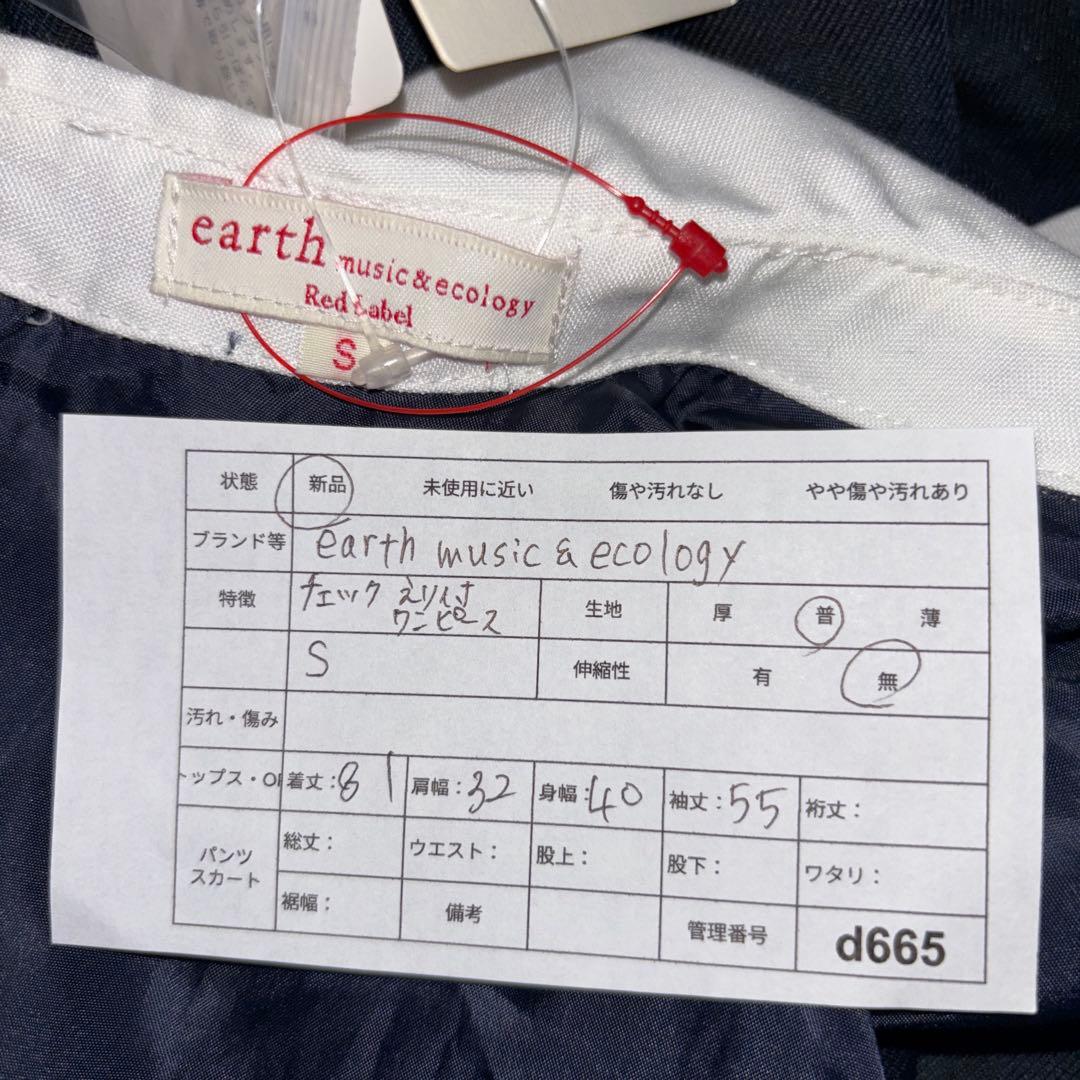 earth music&ecology
Red Label
S
状態 新品 未使用に近い 傷や汚れなし やや傷や汚れあり
ブランド等 earth music & ecology
特徴 チェック えり付 ワンピース 生地 厚 普 薄
S 伸縮性 有 無
汚れ・傷み
トップス・OP 着丈:81 肩幅:32 身幅:40 袖丈:55 裄丈:
パンツ スカート 総丈: ウエスト: 股上: 股下: ワタリ:
裾幅: 備考 管理番号 d665